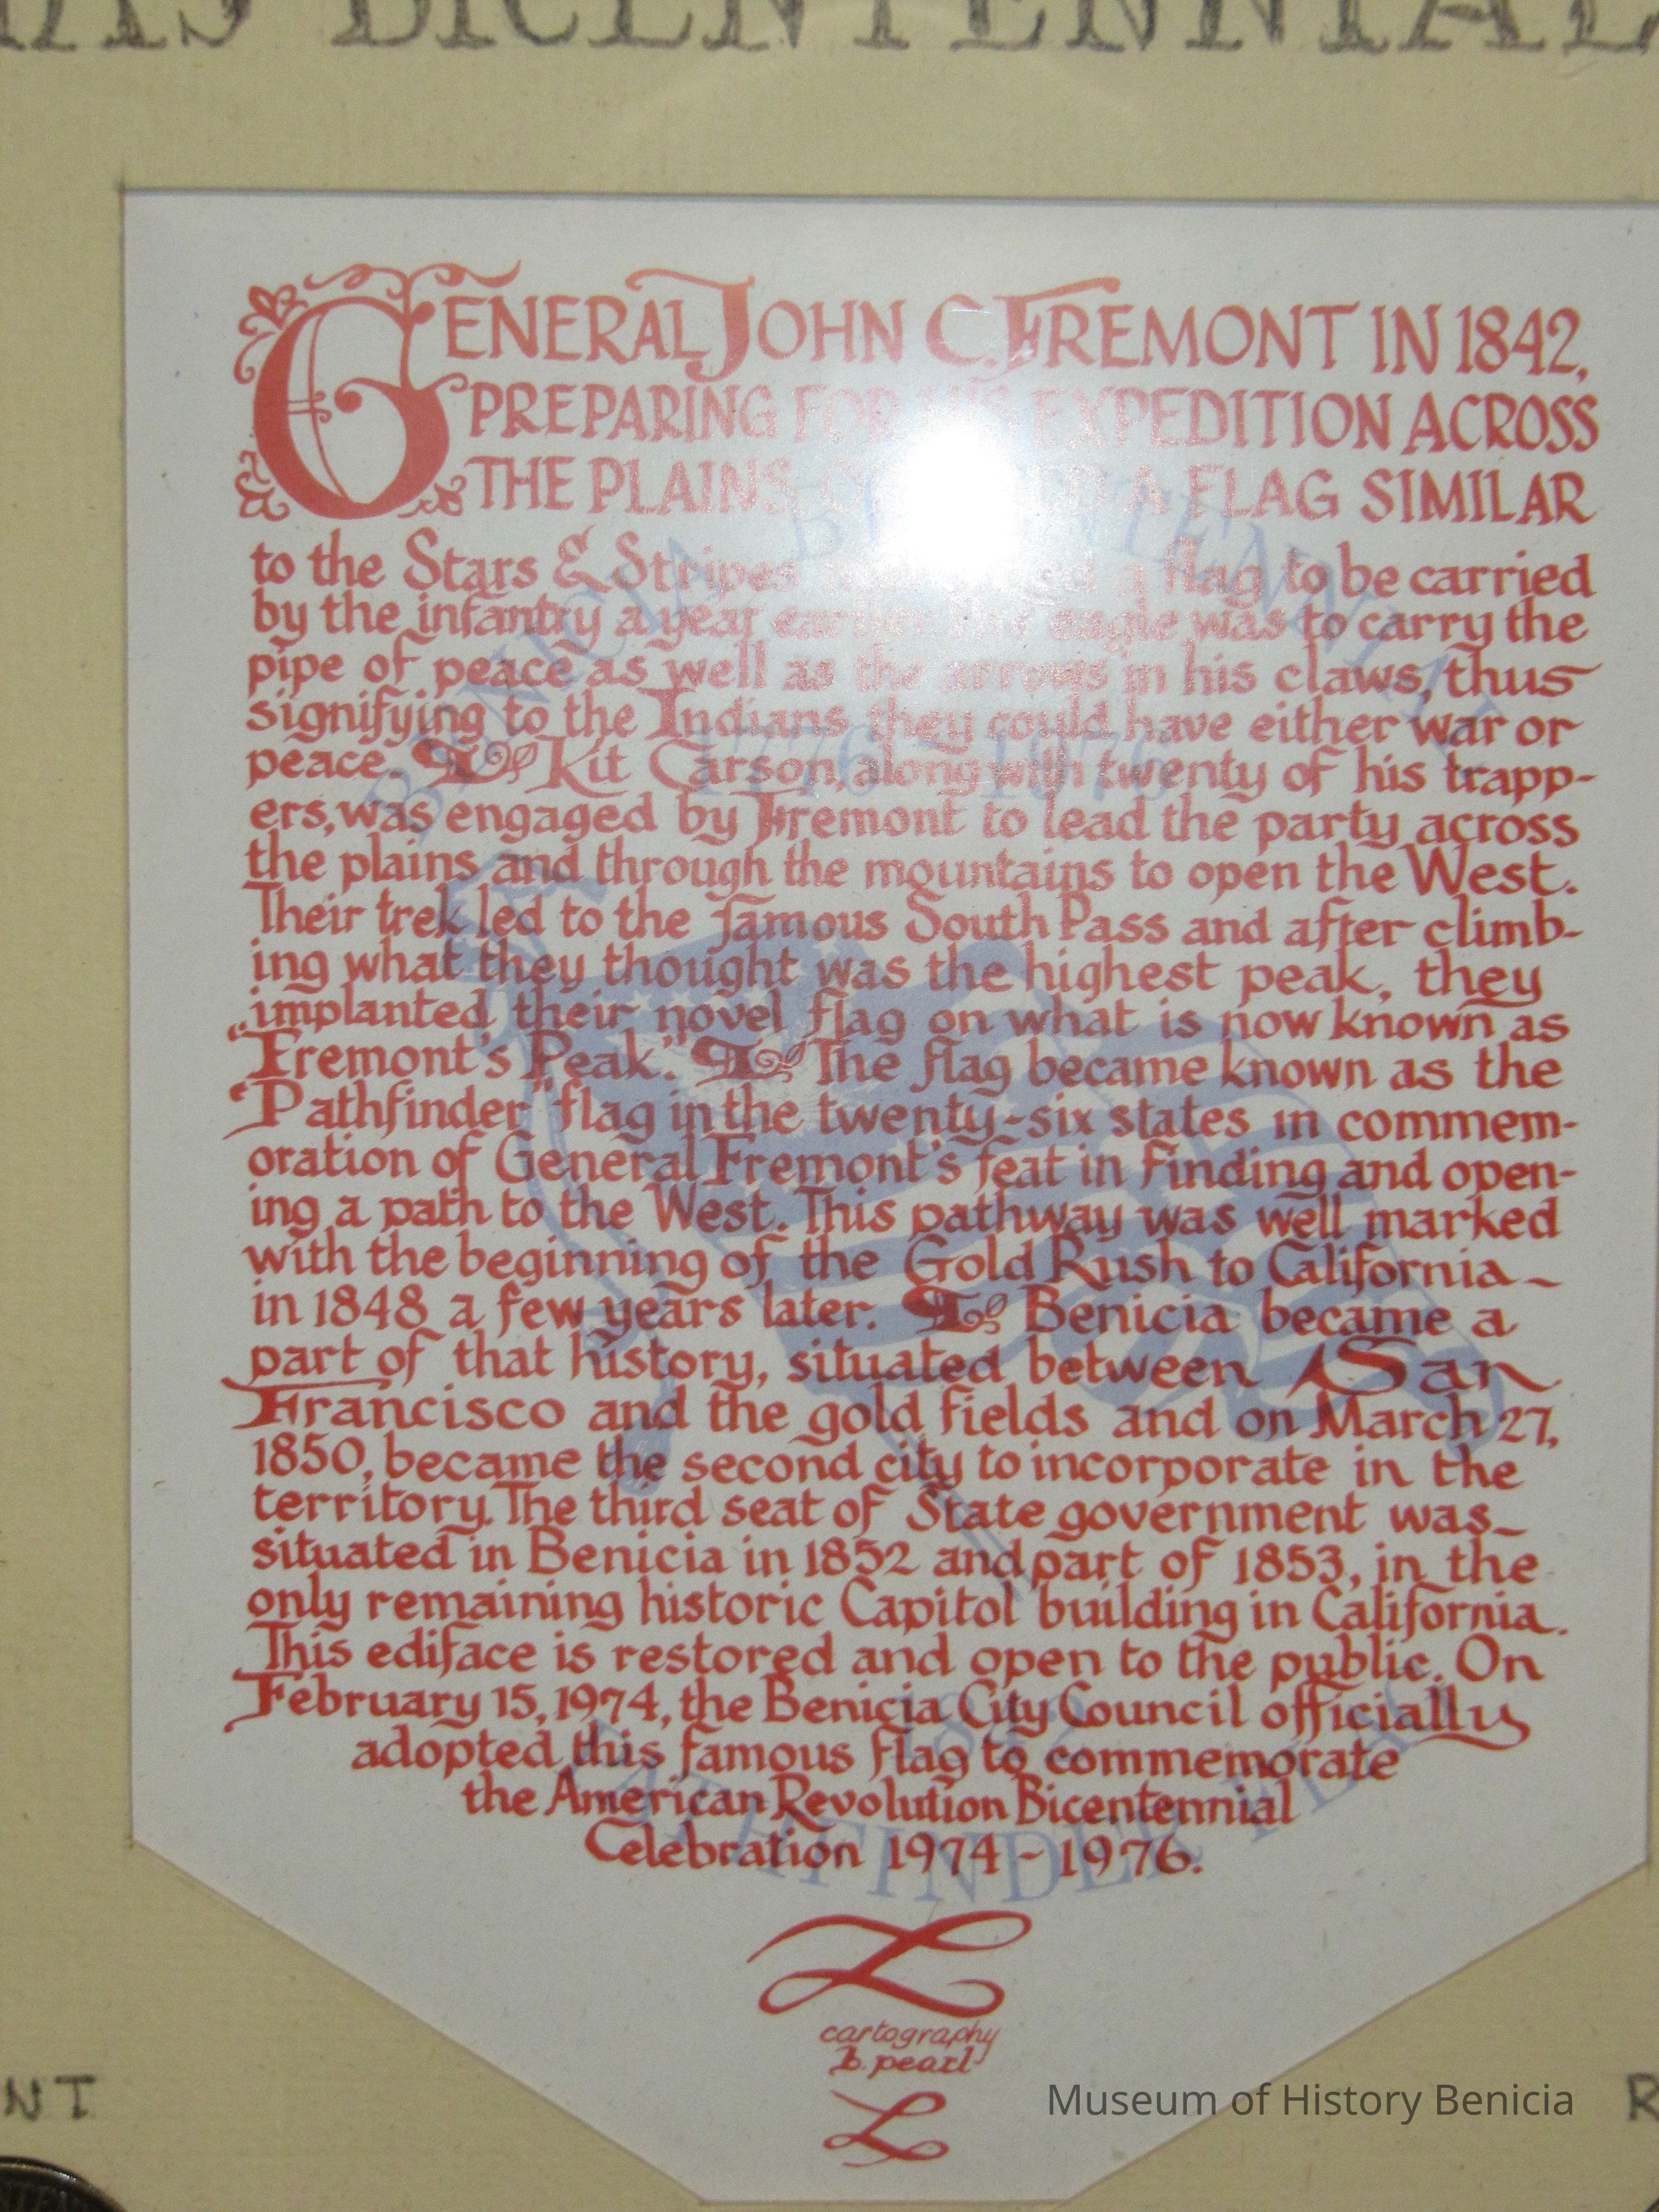 BICENTENNIAL
GENERAL JOHN C. FREMONT IN 1842,
PREPARING FOR HIS EXPEDITION ACROSS
THE PLAINS A FLAG SIMILAR
to the Stars & Stripes a flag to be carried
by the infantry a year earlier. The eagle was to carry the
pipe of peace as well as the arrows in his claws, thus
signifying to the Indians they could have either war or
peace. Kit Carson, along with twenty of his trapp-
ers, was engaged by Fremont to lead the party across
the plains and through the mountains to open the West.
Their trek led to the famous South Pass and after climb-
ing what they thought was the highest peak, they
implanted their novel flag on what is now known as
"Fremont's Peak." The flag became known as the
"Pathfinder" flag in the twenty-six states in commem-
oration of General Fremont's feat in finding and open-
ing a path to the West. This pathway was well marked
with the beginning of the Gold Rush to California
in 1848 a few years later. Benicia became a
part of that history, situated between San
Francisco and the gold fields and on March 27,
1850, became the second city to incorporate in the
territory. The third seat of State government was
situated in Benicia in 1852 and part of 1853, in the
only remaining historic Capitol building in California.
This ediface is restored and open to the public. On
February 15, 1974, the Benicia City Council officially
adopted this famous flag to commemorate
the American Revolution Bicentennial
Celebration 1974-1976.
BENICIA BICENTENNIAL
1776-1976
1842
PATHFINDER FLAG
cartography
b. pearl
Museum of History Benicia